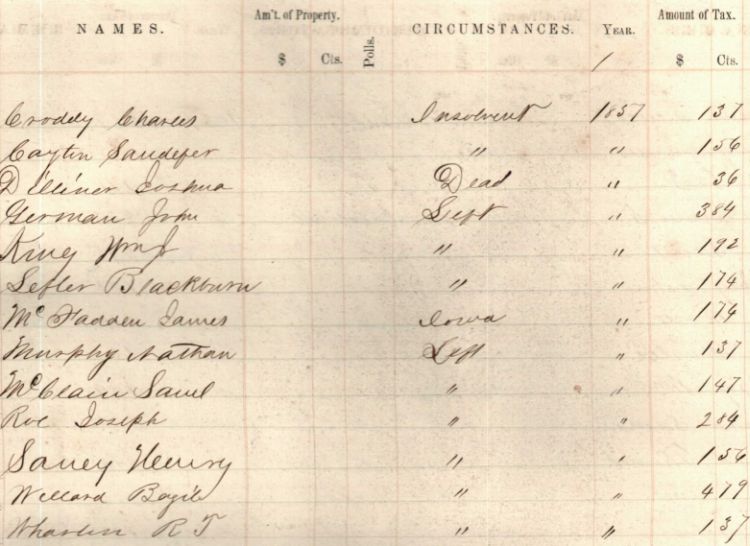 NAMES. Am't. of Property. Polls. CIRCUMSTANCES. YEAR. Amount of Tax.
$ Cts. / $ Cts.
Croddy Charles Insolvent 1857 137
Caytin Sandefer " " 156
Dilliner Joshua Dead " 36
German John Left " 384
King Wm J " " 192
Lefler Blackburn " " 174
McFadden James Iowa " 174
Murphy Nathan Left " 137
McClain Saml " " 147
Roe Joseph " " 284
Saney Henry " " 156
Willard " " 479
R T " " 137